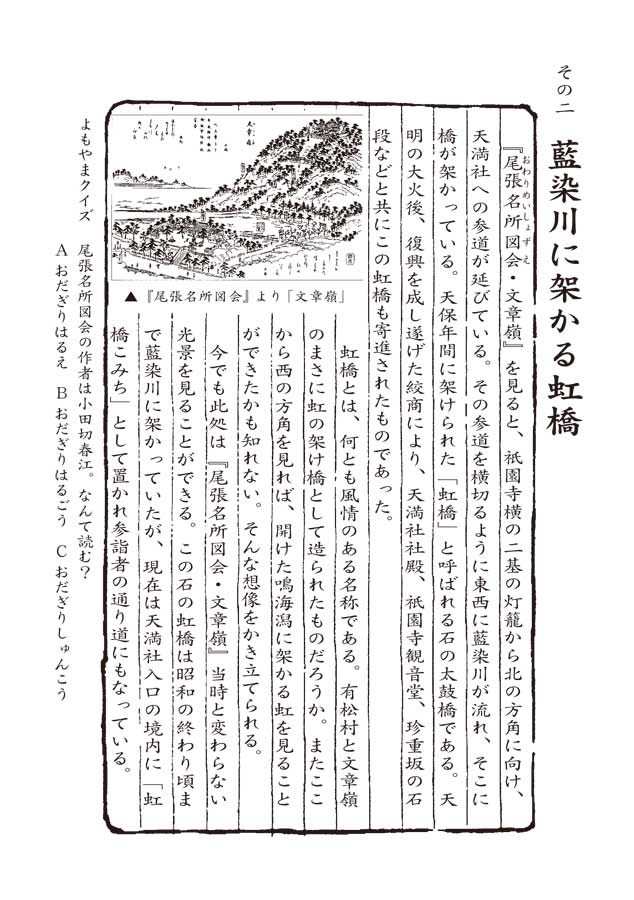 その二　藍染川に架かる虹橋
『尾張名所図会・文章嶺』を見ると、祇園寺横の二基の灯籠から北の方角に向け、
おわりめいしょずえ
天満社への参道が延びている。その参道を横切るように東西に藍染川が流れ、そこに
橋が架かっている。天保年間に架けられた「虹橋」と呼ばれる石の太鼓橋である。天
明の大火後、復興を成し遂げた絞商により、天満社社殿、祇園寺観音堂、珍重坂の石
段などと共にこの虹橋も寄進されたものであった。
文章嶺
▲『尾張名所図会』より「文章嶺」
虹橋とは、何とも風情のある名称である。有松村と文章嶺
のまさに虹の架け橋として造られたものだろうか。またここ
から西の方角を見れば、開けた鳴海潟に架かる虹を見ること
ができたかも知れない。そんな想像をかき立てられる。
今でも此処は『尾張名所図会・文章嶺』当時と変わらない
光景を見ることができる。この石の虹橋は昭和の終わり頃ま
で藍染川に架かっていたが、現在は天満社入口の境内に「虹
橋こみち」として置かれ参詣者の通り道にもなっている。
よもやまクイズ　尾張名所図会の作者は小田切春江。なんて読む？
A おだぎりはるえ　B おだぎりはるごう　C おだぎりしゅんこう